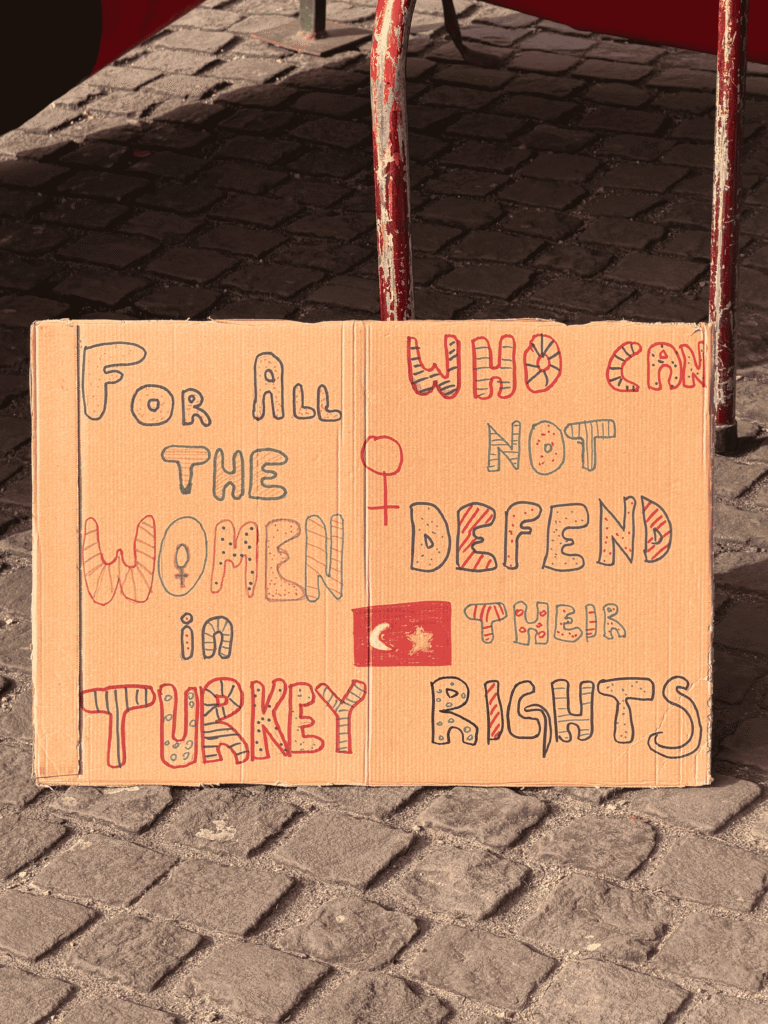 FOR ALL
THE
WOMEN
in
TURKEY
WHO CAN
NOT
DEFEND
THEIR
RIGHTS